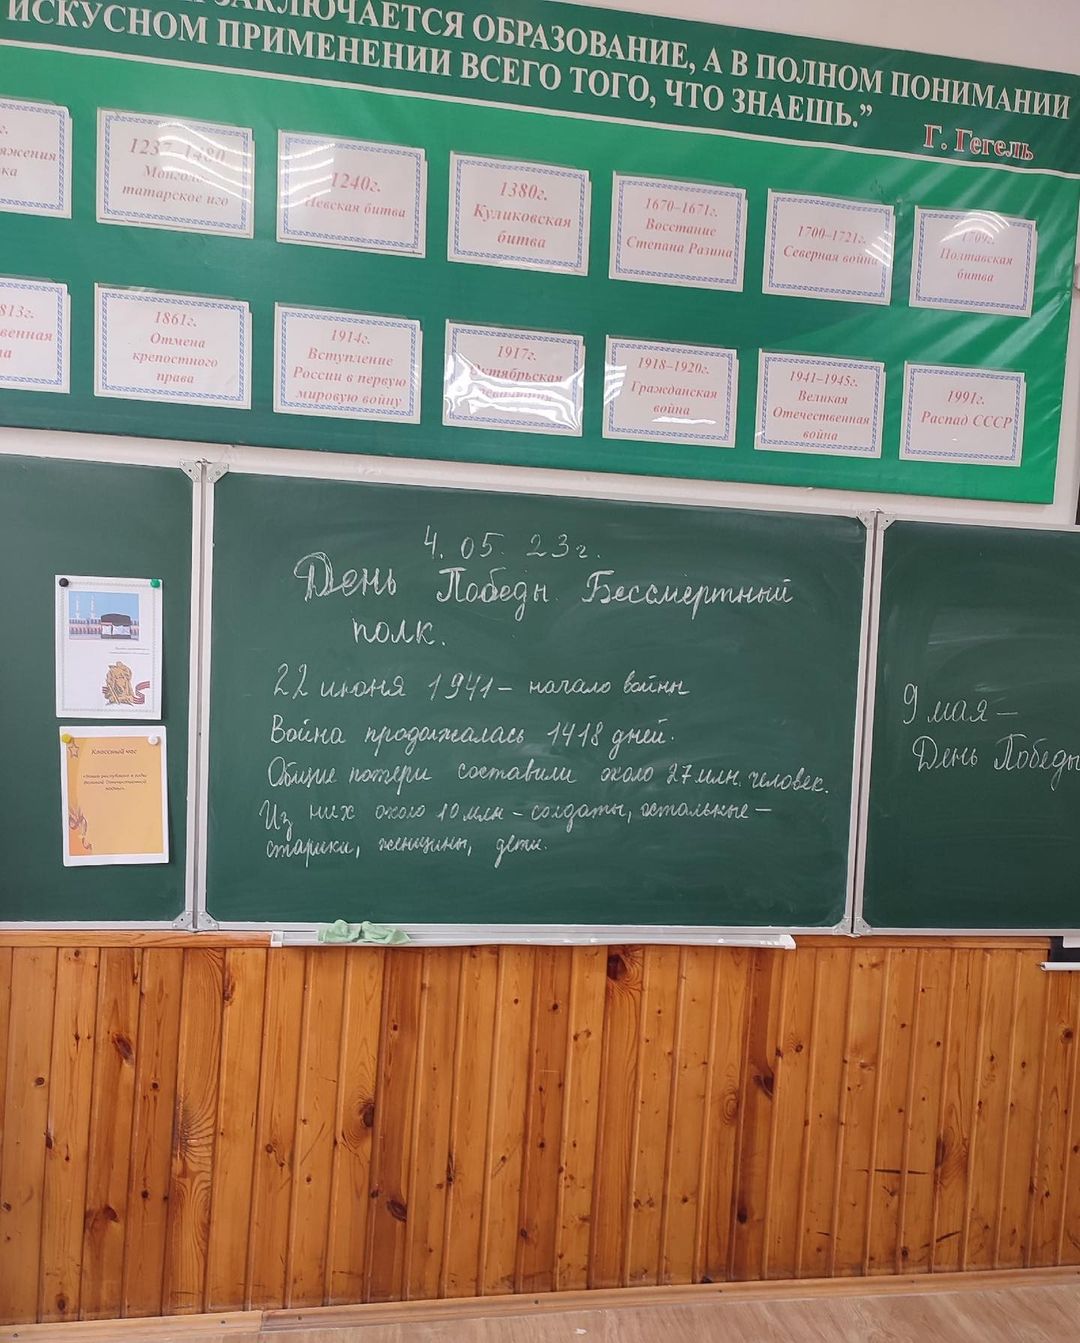 ЗАКЛЮЧАЕТСЯ ОБРАЗОВАНИЕ, А В ПОЛНОМ ПОНИМАНИИ
ИСКУСНОМ ПРИМЕНЕНИИ ВСЕГО ТОГО, ЧТО ЗНАЕШЬ.”
Г. Гегель
1237–1480
Монголо-
татарское иго
1240г.
Невская битва
1380г.
Куликовская
битва
1670–1671г.
Восстание
Степана Разина
1700–1721г.
Северная война
1709г.
Полтавская
битва
813г.
венная
1861г.
Отмена
крепостного
права
1914г.
Вступление
России в первую
мировую войну
1917г.
Октябрьская
революция
1918–1920г.
Гражданская
война
1941–1945г.
Великая
Отечественная
война
1991г.
Распад СССР
4. 05. 23г.
День Победы. Бессмертный
полк.
22 июня 1941 – начало войны
Война продолжалась 1418 дней.
Общие потери составили около 27 млн. человек.
Из них около 10 млн – солдаты, остальные –
старики, женщины, дети.
9 мая –
День Победы
Классный час